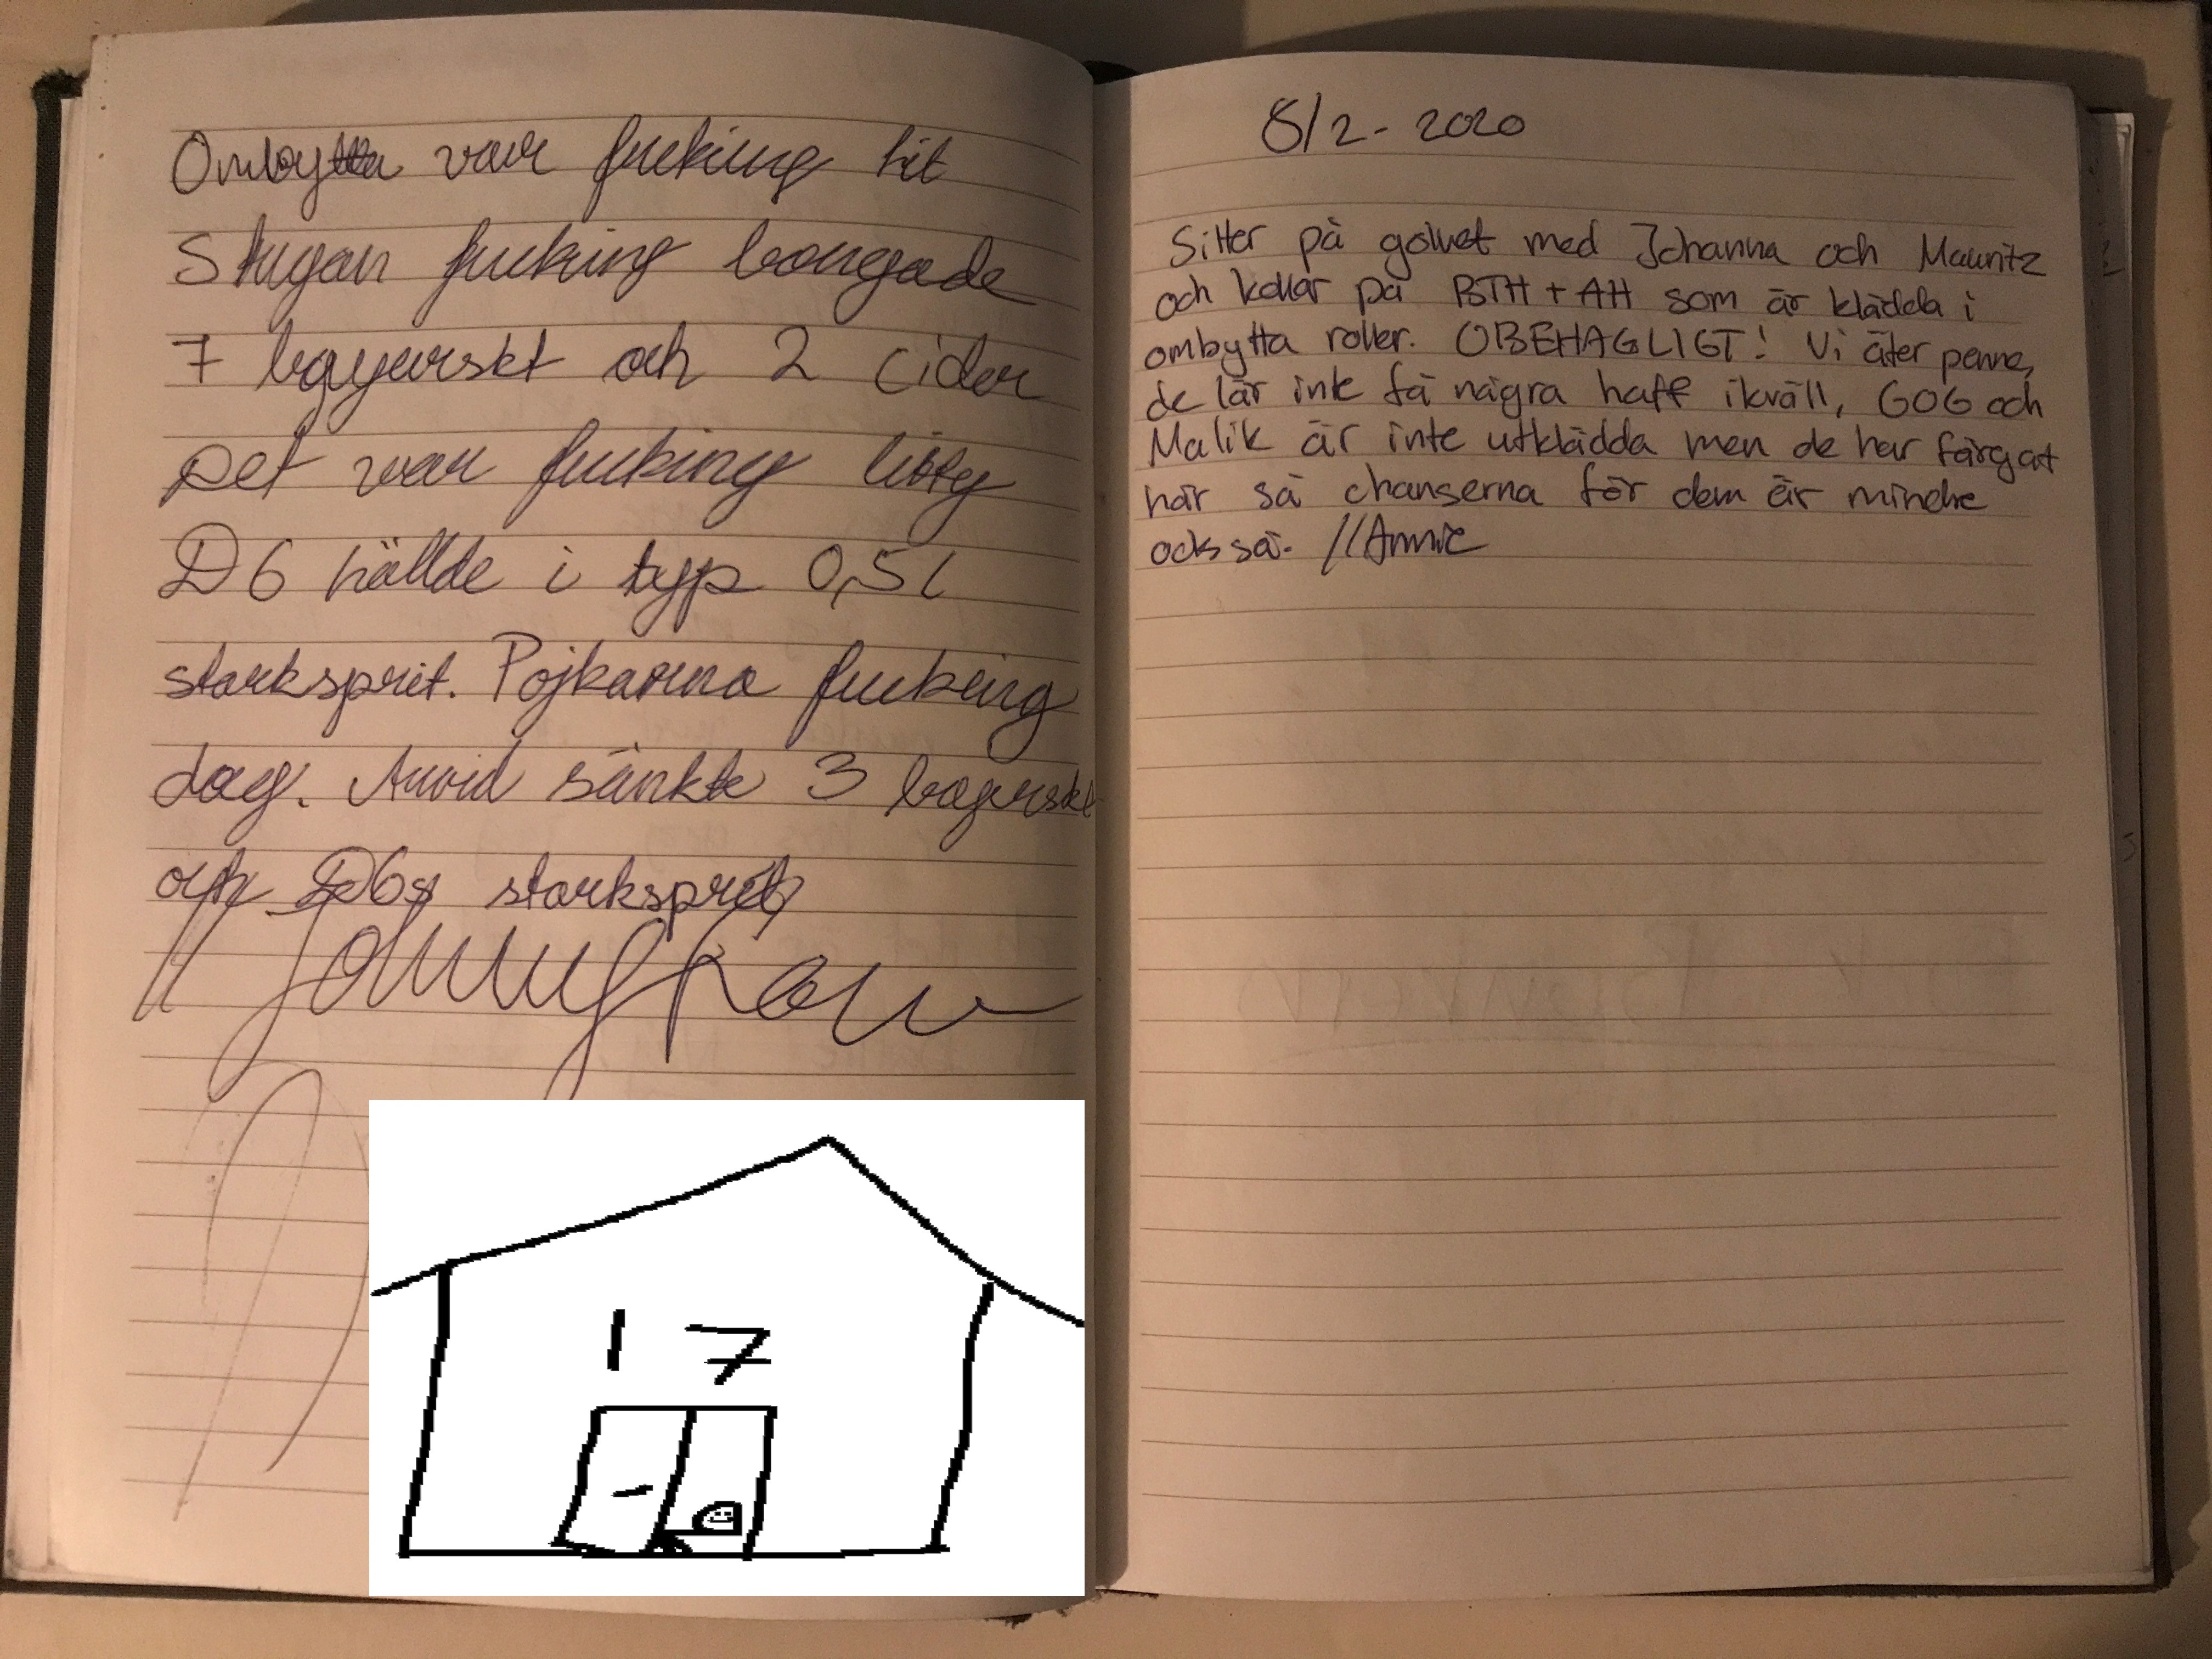 Ombytta var fucking lit
Stugan fucking bongade
7 bayerskt och 2 cider
Det var fucking litty
D6 hällde i typ 0,5l
starksprit. Pojkarna fucking
dog. Arvid sänkte 3 bayerskt
och D6s starksprit
//
17
8/2 - 2020
Sitter på golvet med Johanna och Mauritz
och kollar på BTH + AH som är klädda i
ombytta roller. OBEHAGLIGT! Vi äter penne,
de lär inte få några haff ikväll, GOG och
Malik är inte utklädda men de har färgat
hår så chanserna för dem är mindre
också. //Annie